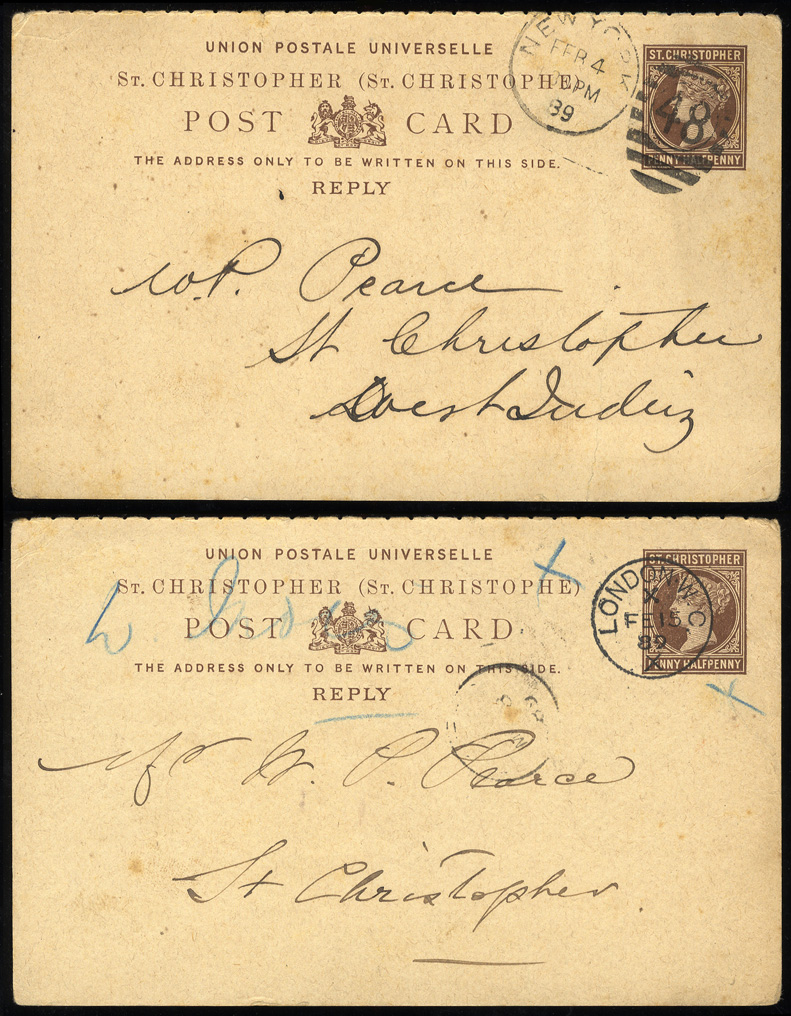 UNION POSTALE UNIVERSELLE
ST. CHRISTOPHER (ST. CHRISTOPHE)
POST CARD
THE ADDRESS ONLY TO BE WRITTEN ON THIS SIDE.
REPLY
NEW YORK
FEB 4
PM
89
ST. CHRISTOPHER
48
PENNY HALFPENNY
W.P. Pearce
St Christopher
West Indies
UNION POSTALE UNIVERSELLE
ST. CHRISTOPHER (ST. CHRISTOPHE)
POST CARD
THE ADDRESS ONLY TO BE WRITTEN ON THIS SIDE.
REPLY
LONDON.W.C
X
FE 15
89
X
ST. CHRISTOPHER
PENNY HALFPENNY
Mr W. P. Pearce
St Christopher